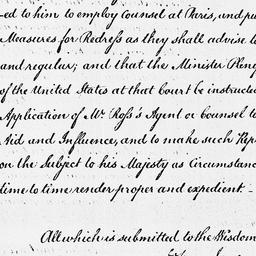 ed to him to employ Counsel at Paris, and pu
Measures for Redress as they shall advise to
and regular; and that the Minister Pleny
of the United States at that Court be instructe
Application of Mr Ross's Agent or counsel to
Aid and Influence, and to make such Rep
on the Subject to his Majesty as Circumstanc
time to time render proper and expedient. –
All which is submitted to the Wisdom